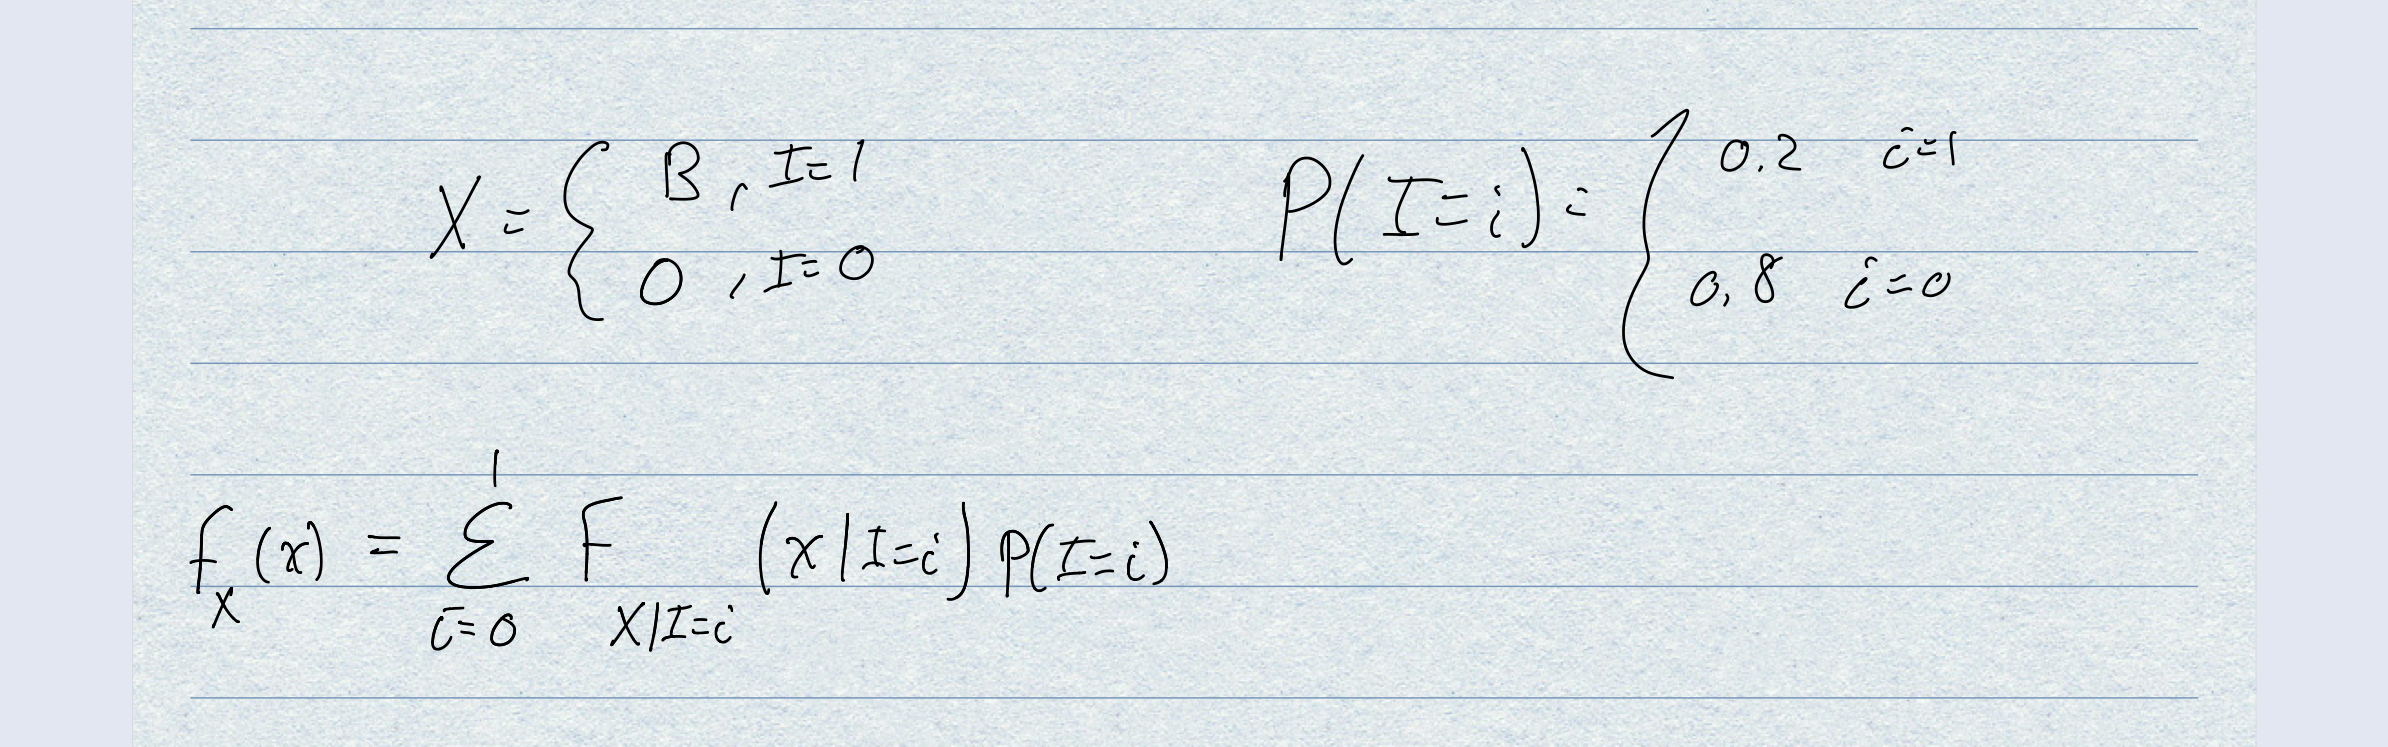 X = { B , I=1
0 , I=0
P(I=i) = { 0.2 i=1
0,8 i=0
f_X (x) = Σ_{i=0}^{1} F_{X|I=i} (x|I=i) P(I=i)